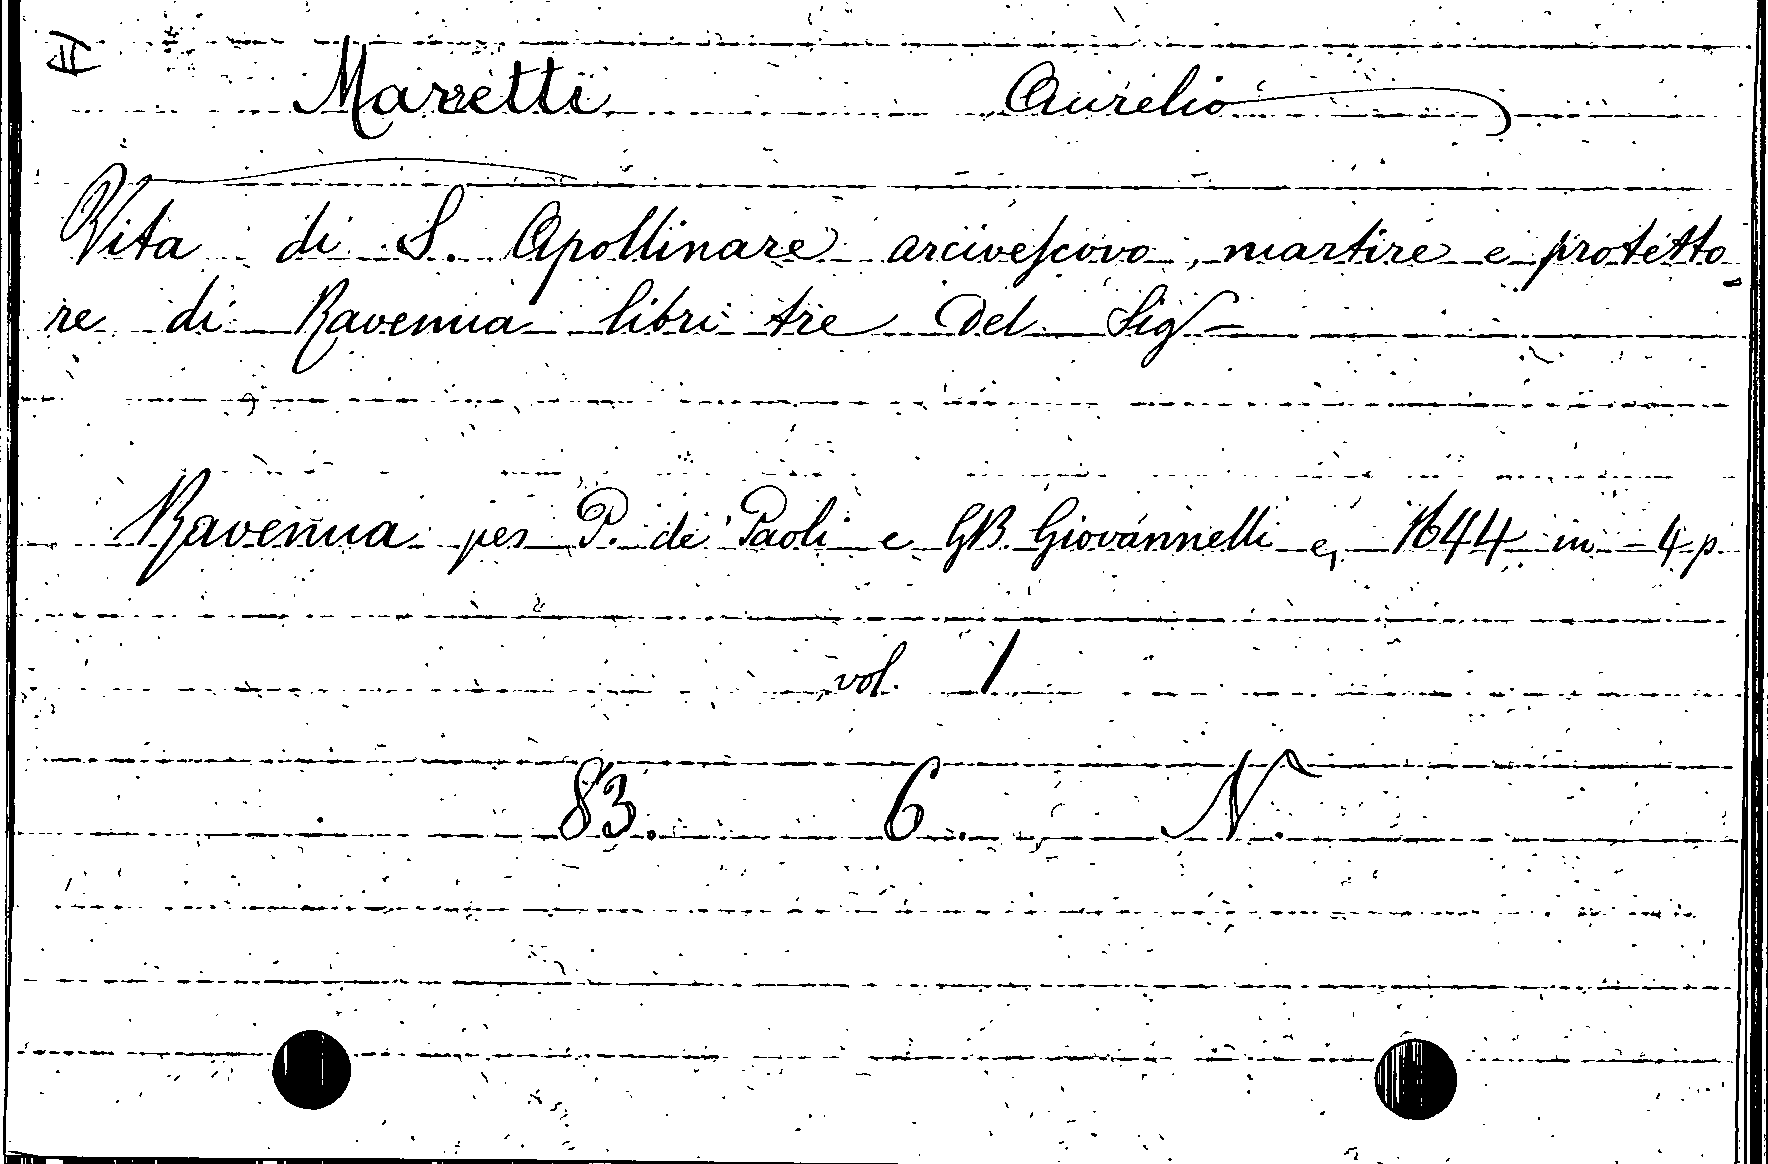 II
Marretti Aurelio
Vita di S. Apollinare arcivescovo, martire e protetto-
re di Ravenna libri tre del Sig
Ravenna per P. de' Paoli e GB. Giovannelli 1644 in-4 p.
vol. 1
83. 6. N.